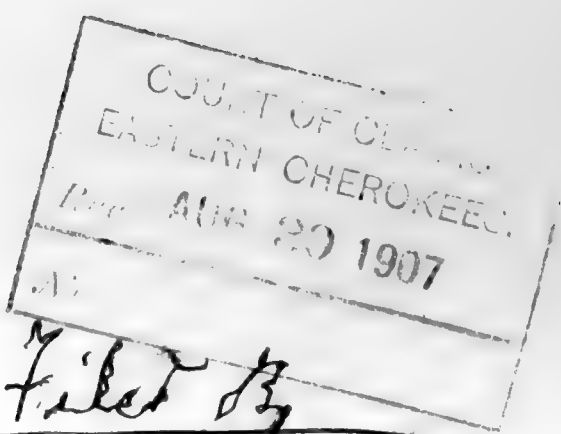 COURT OF CLAIMS
EASTERN CHEROKEES.
Rec. AUG 20 1907
Filed By